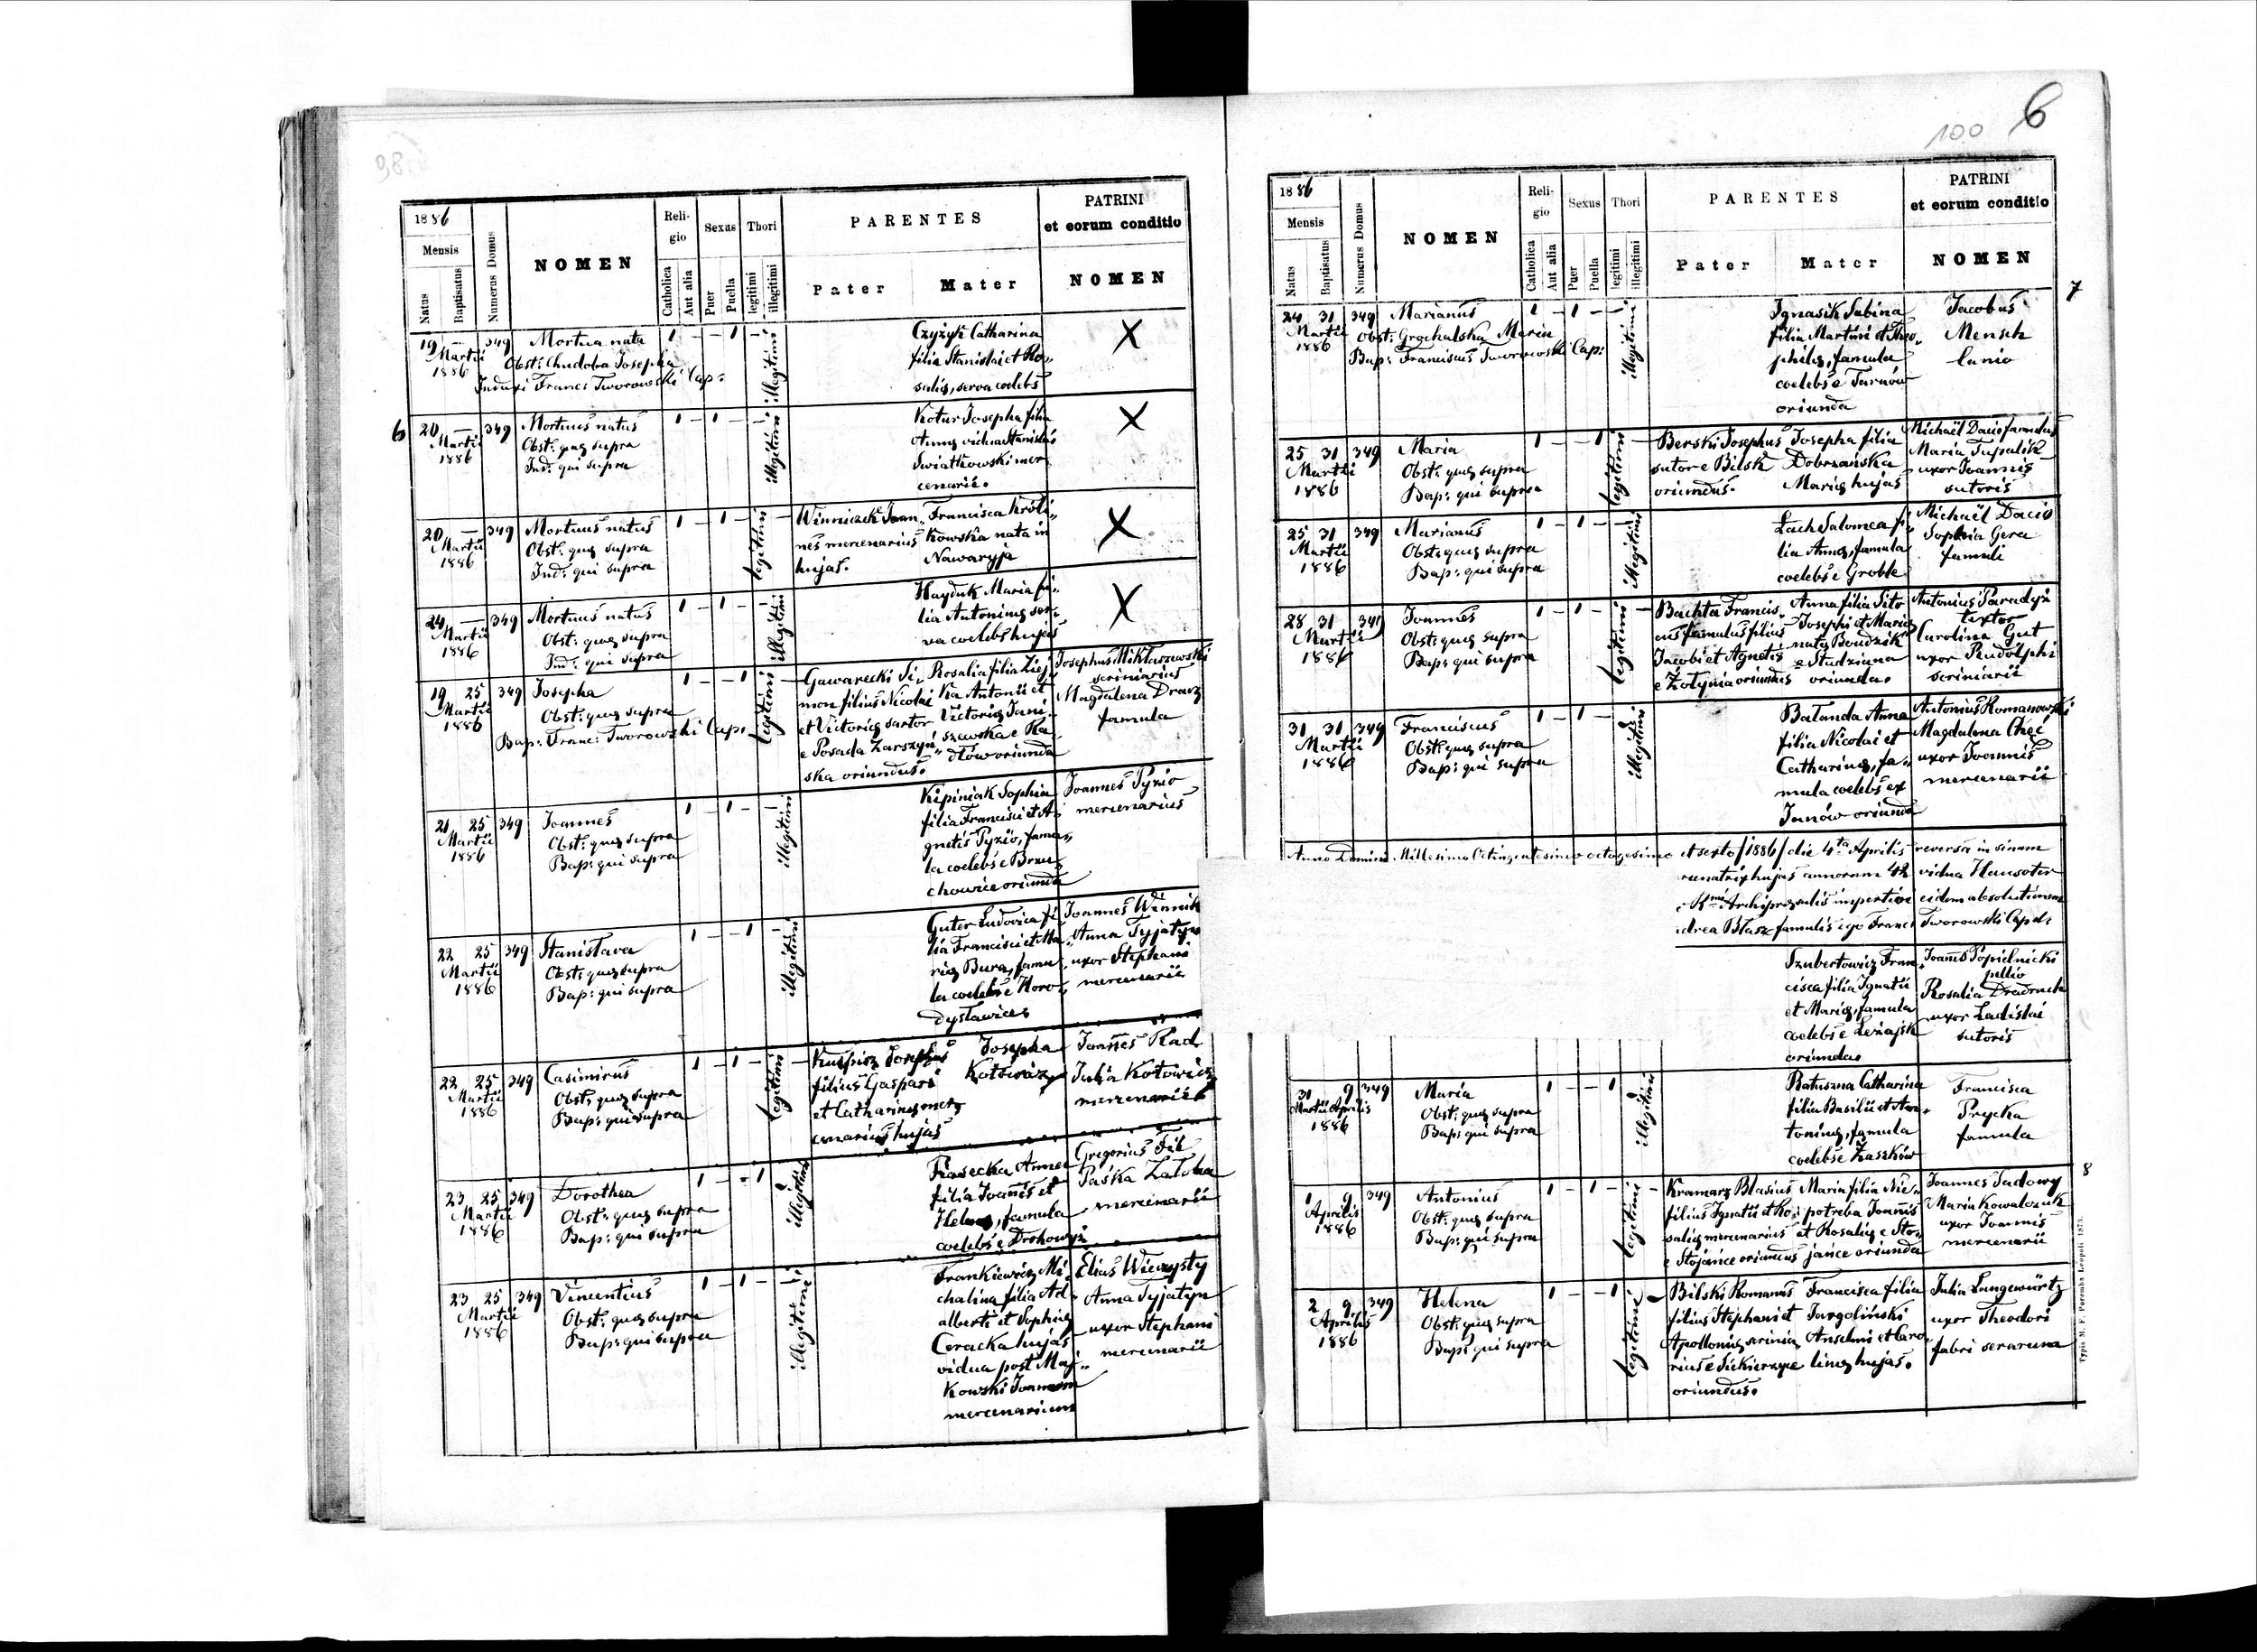 98
1886
Mensis
Natus
Baptisatus
Numerus Domus
NOMEN
Religio
Catholica
Aut alia
Sexus
Puer
Puella
Thori
legitimi
illegitimi
PARENTES
Pater
Mater
PATRINI
et eorum conditio
NOMEN
19 — 349 Mortua nata 1 — — 1 —
Martii
1886
Obst: Chudoba Josepha
Induxi Franc: Tworowski Cap:
illegitimi
Czyżyk Catharina
filia Stanislai et Ro-
salię, serva coelebs
X
6
20 — 349 Mortuus natus 1 — 1 —
Martii
1886
Obst: quę supra
Ind: qui supra
illegitimi
Kotur Josepha filia
Annę vidua Stanislai
Swiatkowski mer
cenarii.
X
20 — 349 Mortuus natus 1 — 1 —
Martii
1886
Obst: quę supra
Ind: qui supra
legitimi
Winniczek Joan-
nes mercenarius
hujas.
Francisca Króli-
kowska nata in
Nawaryja
X
24 — 349 Mortuus natus 1 — 1 —
Martii
1886
Obst: quę supra
Ind: qui supra
illegitimi
Hayduk Maria fi-
lia Antoninę ser-
va coelebs hujas
X
19 25 349 Josepha 1 — — 1
Martii
1886
Obst: quę supra
Bap: Franc: Tworowski Cap:
legitimi
Gawarecki Si-
mon filius Nicolai
et Victorię sartor
e Posada Zarszyń-
ska oriundus.
Rosalia filia Ziej-
ka Antonii et
Victorię Jani-
szewska e Ra-
dłów oriunda
Josephus Miktaszewski
scriniarius
Magdalena Dracz
famula
21 25 349 Joannes 1 — 1 —
Martii
1886
Obst: quę supra
Bap: qui supra
illegitimi
Kipiniak Sophia
filia Francisci et A-
gnetis Pyzio, famu-
la coelebs e Brzu-
chowice oriunda
Joannes Pyzio
mercenarius
22 25 349 Stanislava 1 — — 1
Martii
1886
Obst: quę supra
Bap: qui supra
illegitimi
Guter Ludovica fi-
lia Francisci et Ma-
rię Burą, famu-
la coelebs e Horo-
dysławice
Joannes Winnik
Anna Tyjatyn
uxor Stephani
mercenarii
22 25 349 Casimirus 1 — 1 —
Martii
1886
Obst: quę supra
Bap: qui supra
legitimi
Kuspisz Josephus
filius Gaspari
et Catharinę merc
enarius hujas
Josepha
Kotowicz
Joannes Rad
Julia Kotowicz
mercenarii
23 25 349 Dorothea 1 — — 1
Martii
1886
Obst: quę supra
Bap: qui supra
illegitimi
Piasecka Anna
filia Joannis et
Helenę, famula
coelebs e Drohowyż
Gregorius Fil
Paśka Załoha
mercenarii
23 25 349 Vincentius 1 — 1 —
Martii
1886
Obst: quę supra
Bap: qui supra
illegitimi
Frankiewicz Mi-
chalina filia Ad-
alberti et Sophię
Ceracka hujas
vidua post Maj-
kowski Joannem
mercenarium
Elias Wieczysty
Anna Tyjatyn
uxor Stephani
mercenarii
100
6
1886
Mensis
Natus
Baptisatus
Numerus Domus
NOMEN
Religio
Catholica
Aut alia
Sexus
Puer
Puella
Thori
legitimi
illegitimi
PARENTES
Pater
Mater
PATRINI
et eorum conditio
NOMEN
7
24 31 349 Marianus 1 — 1 —
Martii
1886
Obst: Grochalska Maria
Bap: Franciscus Tworowski Cap:
illegitimi
Ignasik Sabina
filia Martini et Theo-
philę, famula
coelebs e Tarnów
oriunda
Jacobus
Mensch
lanio
25 31 349 Maria 1 — — 1
Martii
1886
Obst: quę supra
Bap: qui supra
legitimi
Berski Josephus
sutor e Bilsk
oriundus.
Josepha filia
Dobrzańska
Marię hujas
Michaël Dacio famulus
Maria Tupalik
uxor Joannis
sutoris
25 31 349 Marianus 1 — 1 —
Martii
1886
Obst: quę supra
Bap: qui supra
illegitimi
Lach Salomea fi-
lia Annę, famula
coelebs e Groble
Michaël Dacio
Sophia Gera
famuli
28 31 349 Joannes 1 — 1 —
Martii
1886
Obst: quę supra
Bap: qui supra
legitimi
Bachta Francis-
cus famulus filius
Jacobi et Agnetis
e Żołynia oriundus
Anna filia Sito
Josephi et Marię
natę Boudzik
e Studziana
oriunda.
Antonius Paradyż
textor
Carolina Gut
uxor Rudolphi
scriniarii
31 31 349 Franciscus 1 — 1 —
Martii
1886
Obst: quę supra
Bap: qui supra
illegitimi
Bałanda Anna
filia Nicolai et
Catharinę, fa-
mula coelebs ex
Janów oriunda
Antonius Romanowski
Magdalena Chęć
uxor Joannis
mercenarii
Anno Domini Millesimo Octingentesimo octogesimo et sexto /1886/ die 4ta Aprilis reversa in sinum
annorum 42 vidua
Archipręsulis impertivi eidem absolutionem
Błasz famulis ego Franc: Tworowski Cap:
Szubertowicz Fran-
cisca filia Ignatii
et Marię, famula
coelebs e Leżajsk
oriunda.
Joannes Popielnicki
pellio
Rosalia
uxor Ladislai
sutoris
31 9 349 Maria 1 — — 1
Martii Aprilis
1886
Obst: quę supra
Bap: qui supra
illegitimi
Ratuszna Catharina
filia Basilii et An-
toninę, famula
coelebs e Żaszków
Francisca
Prycka
famula
8
1 9 349 Antonius 1 — 1 —
Aprilis
1886
Obst: quę supra
Bap: qui supra
legitimi
Kramarz Blasius
filius Ignatii et Ro-
salię mercenarius
e Stojańce oriundus
Maria filia Nie-
potreba Joannis
et Rosalię e Sto-
jańce oriunda
Joannes Sadowy
Maria Kowalczuk
uxor Joannis
mercenarii
2 9 349 Helena 1 — — 1
Aprilis
1886
Obst: quę supra
Bap: qui supra
legitimi
Bilski Romanus
filius Stephani et
Apollonię scrinia-
rius e Siekierzyce
oriundus.
Francisca filia
Targoliński
Anselmi et Caro-
linę hujas.
Julia Lungewürtz
uxor Theodori
fabri serarum
Typis M. F. Poremba Leopoli 1875.